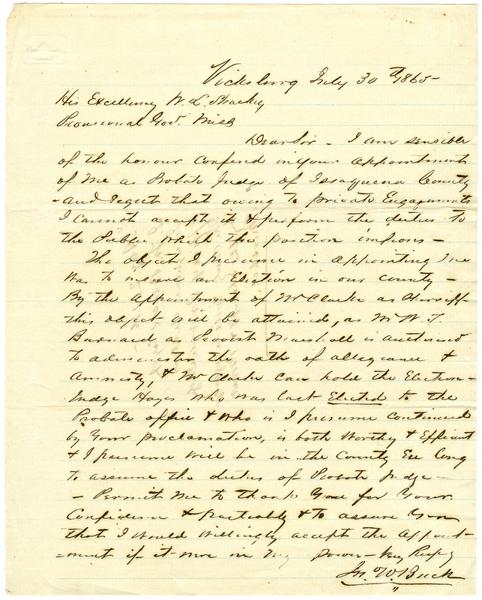 Vicksburg July 30th 1865-
His Excellency W. L. Sharkey
Provisional Gov. Miss
Dear Sir - I am sensible
of the honour confered in your appointment
of me as Probate Judge of Issaquena County
- and regret that owing to private Engagements
I cannot accept it & perform the duties to
the Public which the position imposes -
The object I presume in appointing me
was to insure an Election in our county -
By the appointment of Mr Clarke as Sheriff
this object will be attained, as Mr W. T.
Barnard as Provost Marshall is authorised
to administer the oath of allegiance &
Amnesty, & Mr Clarke can hold the Election -
Judge Hayes who was last Elected to the
Probate office & who is I presume continued
by Your proclamation, is both Worthy & Efficient
& I presume will be in the County Ere long
to assume the duties of Probate Judge -
- Permit me to thank You for Your
Confidence & & to assure You
that I would willingly accept the Appoint-
=ment if it was in my power - Very Respy
Jn. W Buck